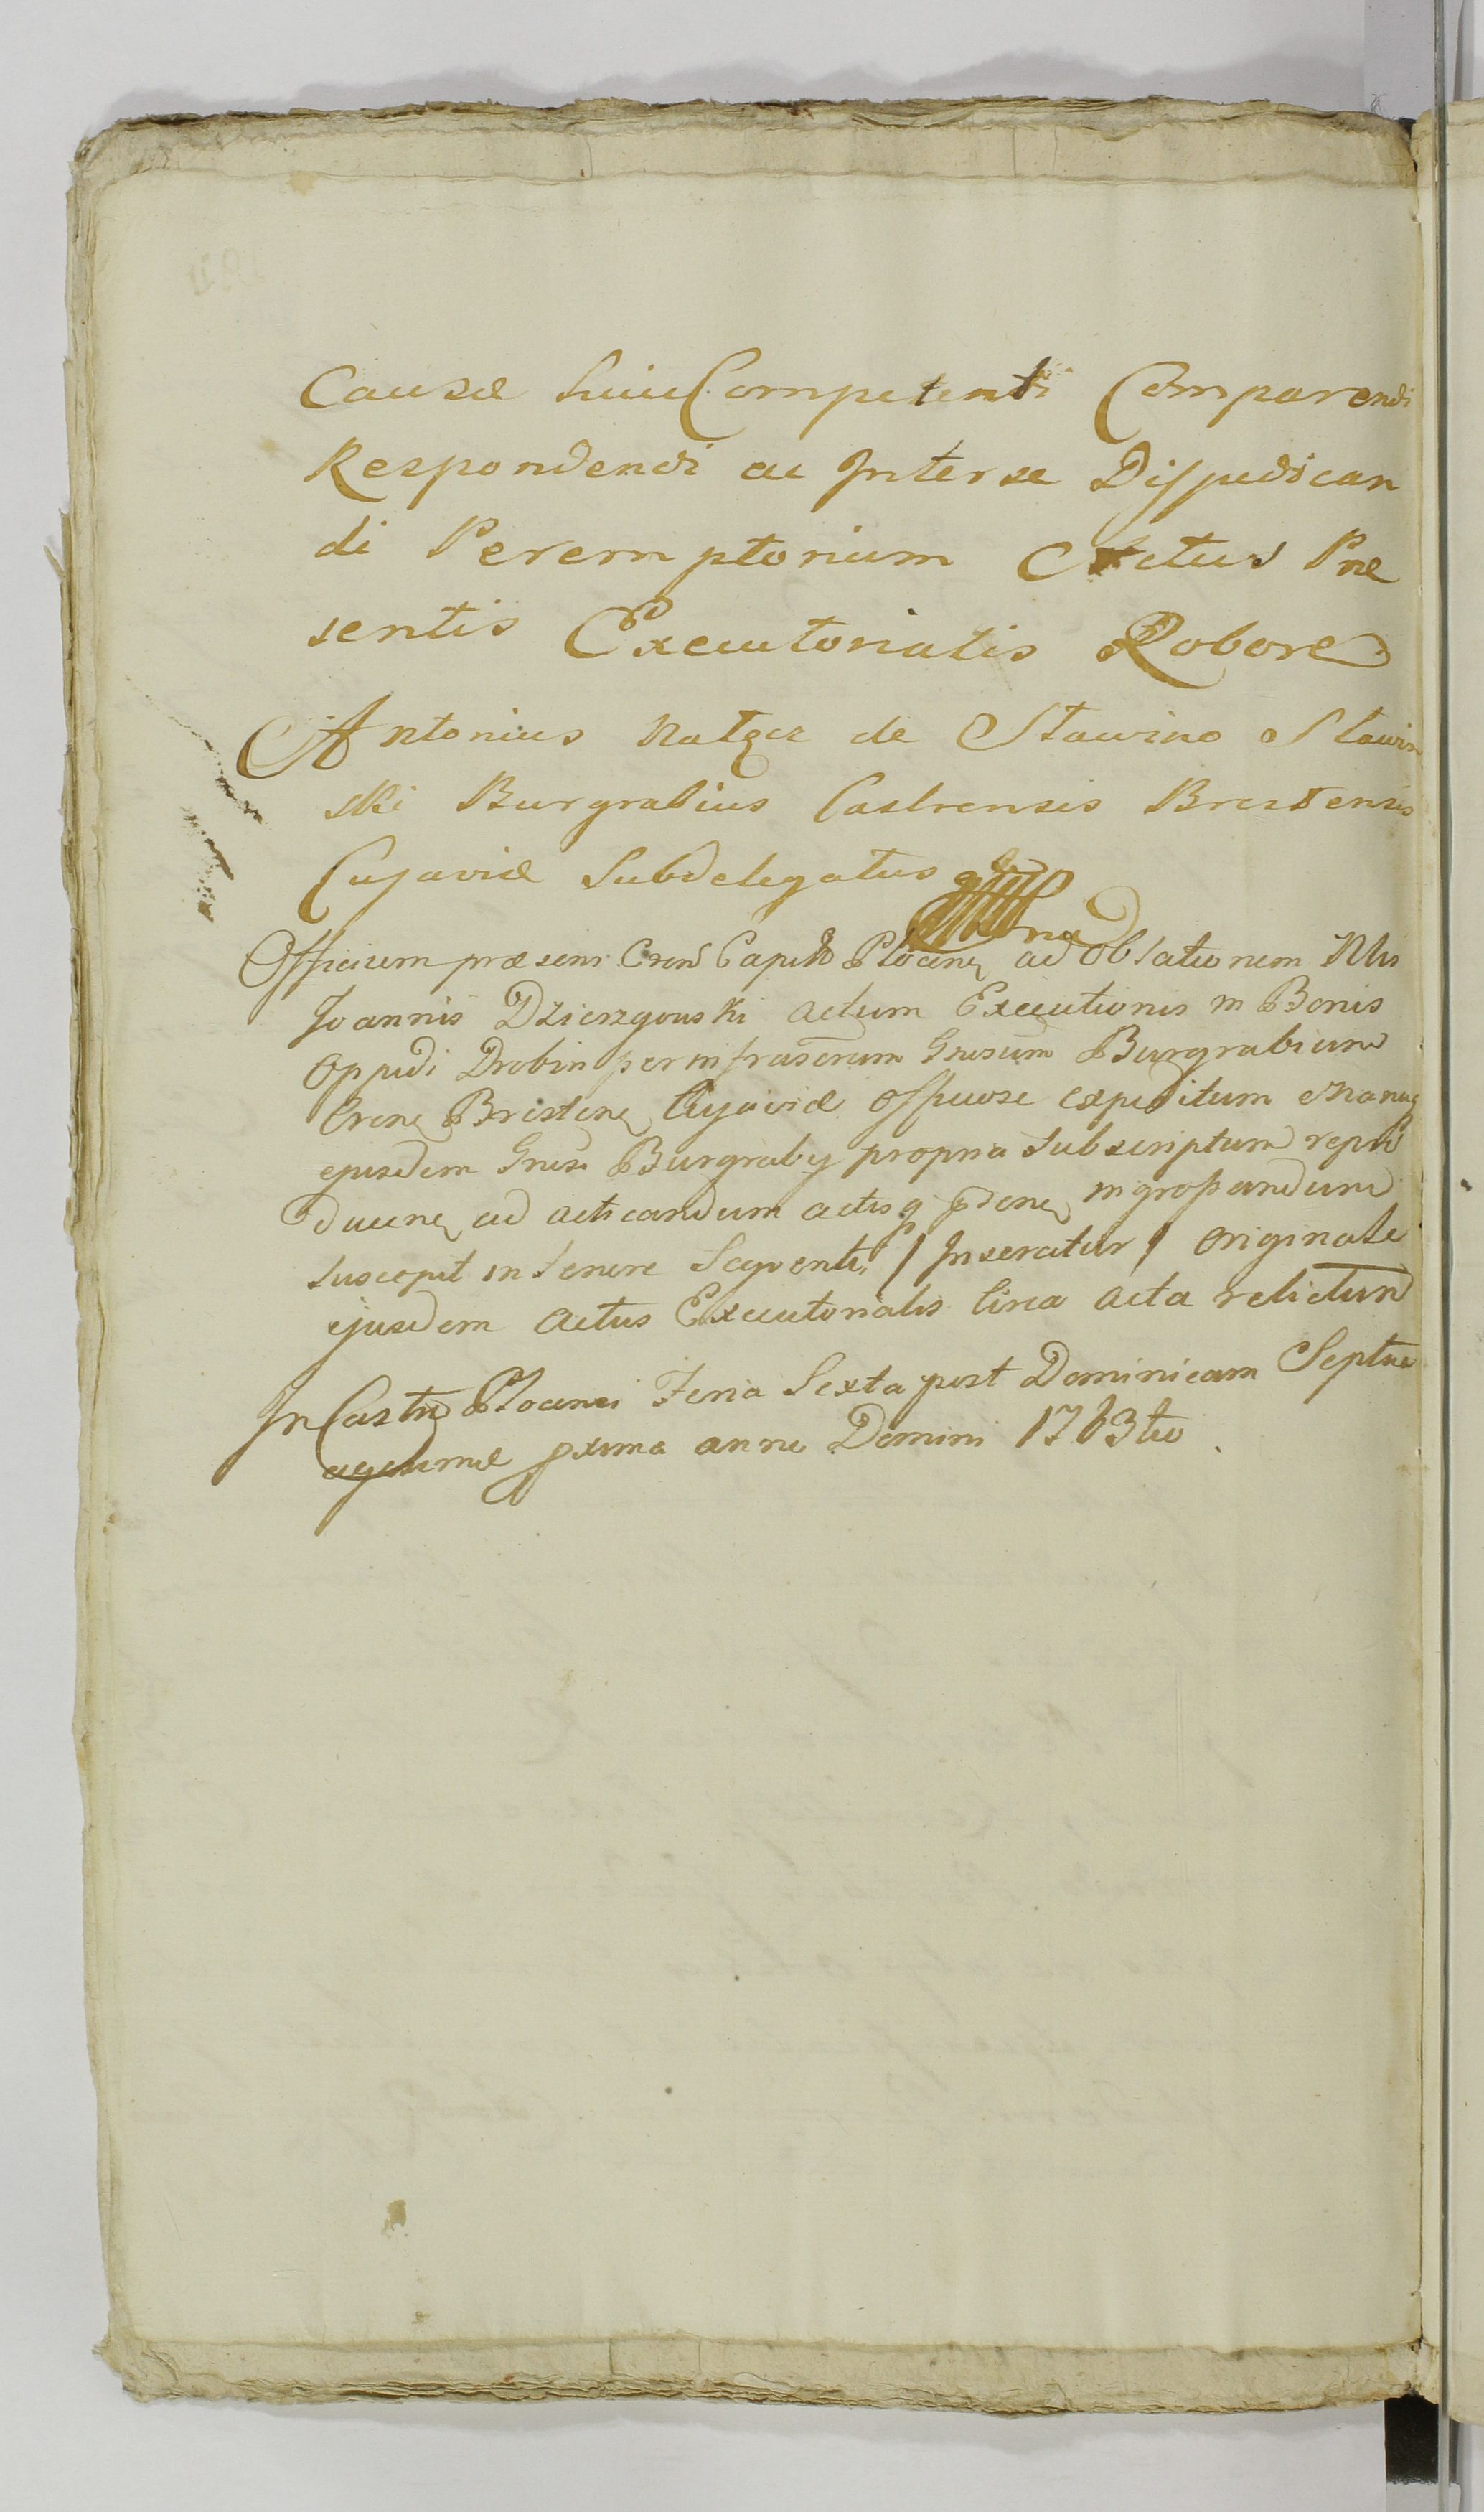 Causæ huic Competenti Comparendi
Respondendi ac Inter se Disjudican
di Peremptorium Actus Præ
sentis Executorialis Robore
Antonius de Sławino Sławin
ski Burgrabius Castrensis Brestensis
Cujaviæ Subdelegatus
Officium præsens Cren Capit Plocen ad Oblationem Nlis
Joannis Dzierzgowski Actum Executionis in Bonis
Oppidi Drobin per infrascrum Gnrsum Burgrabium
Cren Bresten Cujaviæ Officiose expeditum Manuq
ejusdem Gnrsi Burgrabij propria Subscriptum repro
ducen ad acticandum actisq pden ingrossandum
suscepit in Tenore Seqventi / Inseratur / Originale
ejusdem Actus Executorialis Circa Acta relictum
In Castro Plocensi Feria Sexta post Dominicam Septua
gesimæ pxima anno Domini 1763tio